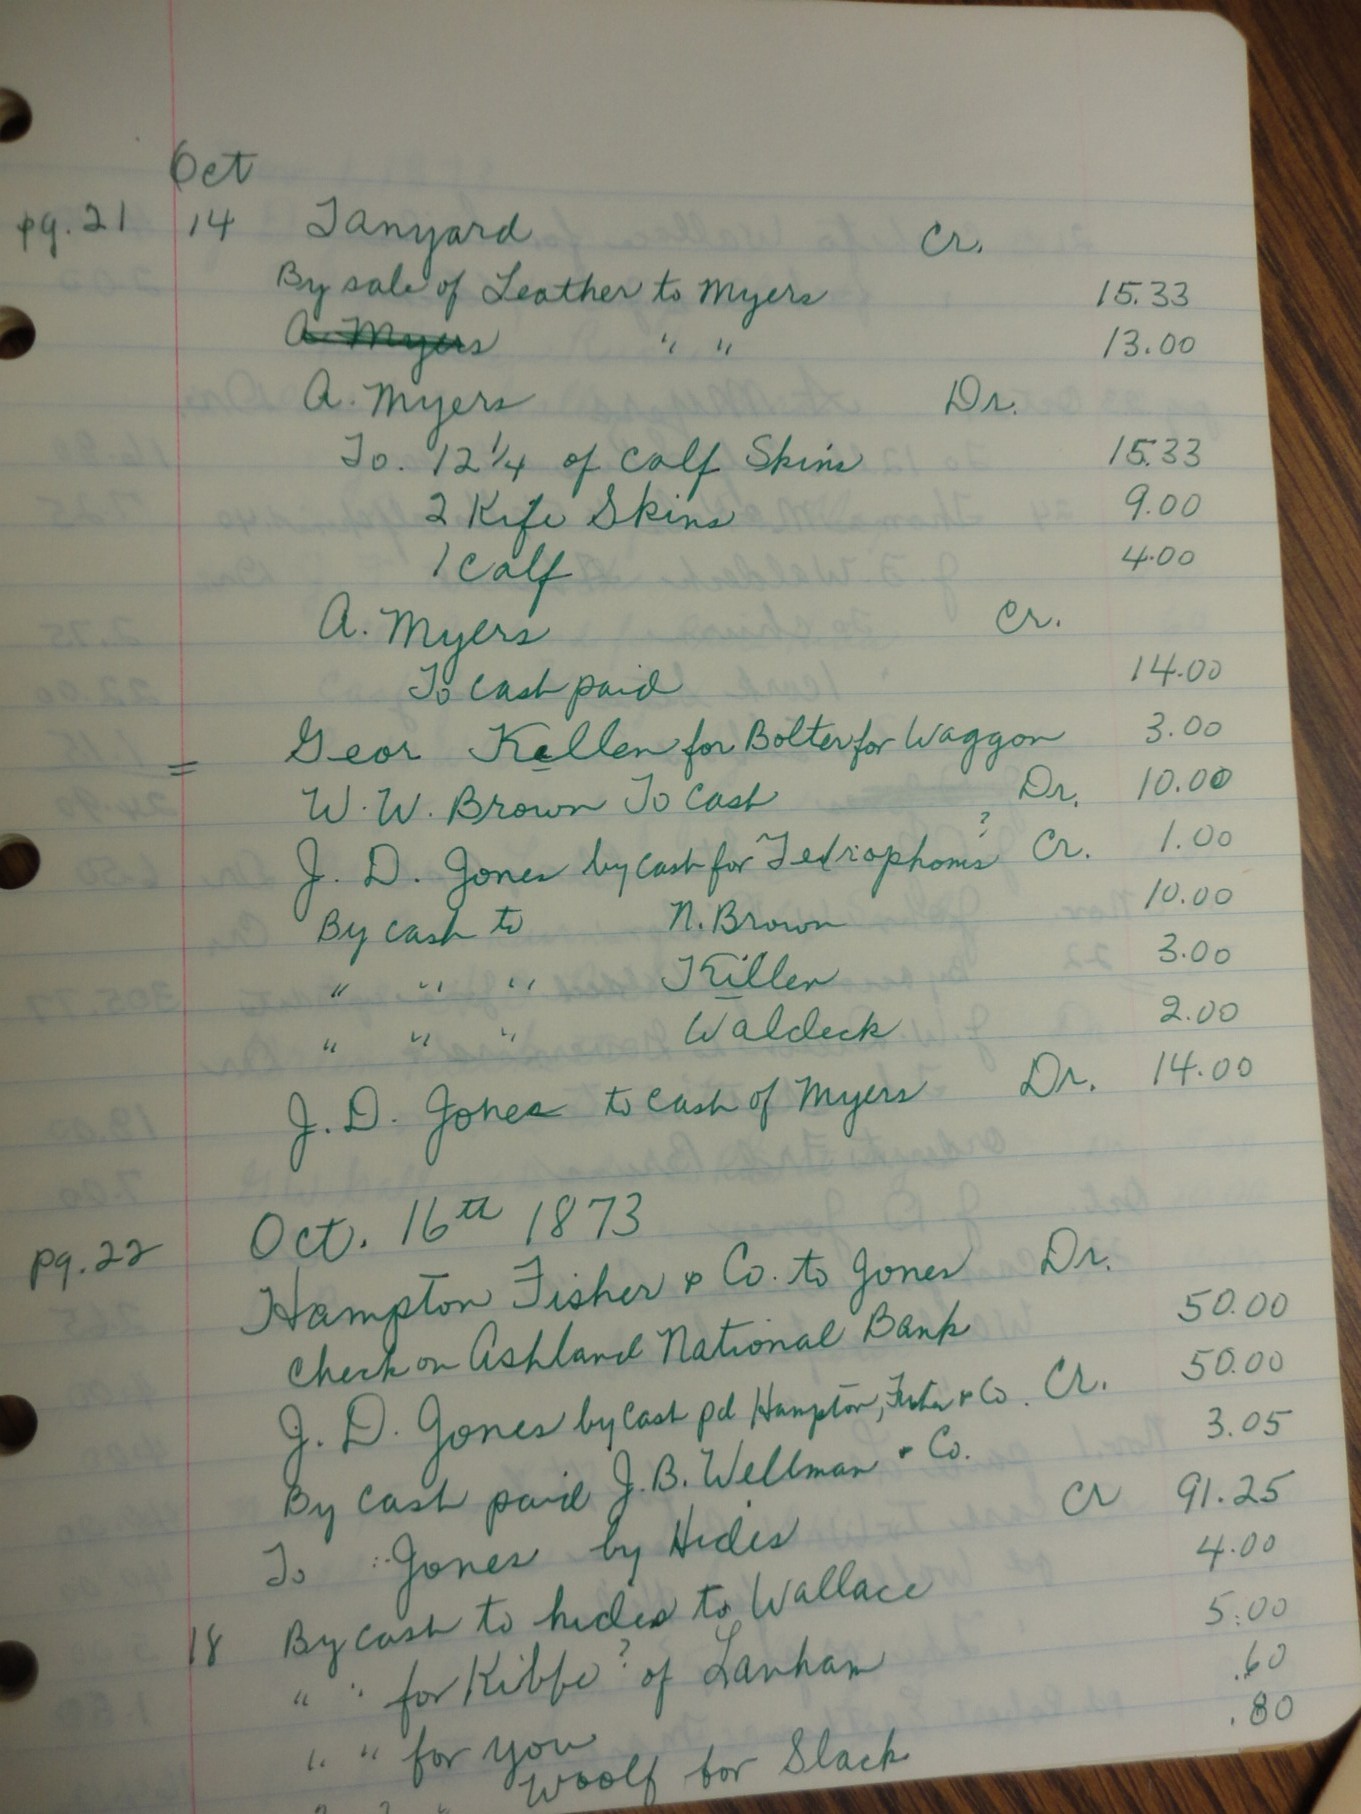 Oct
pg. 21 14 Tanyard Cr.
By sale of Leather to Myers 15.33
A. Myers " " 13.00
A. Myers Dr.
To. 12 1/4 of Calf Skins 15.33
2 Kife Skins 9.00
1 Calf 4.00
A. Myers Cr.
To Cash paid 14.00
= Geor Kellen for Bolter for Waggon 3.00
W. W. Brown To Cash Dr. 10.00
J. D. Jones by cash for ? Cr. 1.00
By cash to N. Brown 10.00
" " " Killen 3.00
" " " Waldeck 2.00
J. D. Jones to cash of Myers Dr. 14.00
pg. 22 Oct. 16th 1873
Hampton Fisher & Co. to Jones Dr.
Check on Ashland National Bank 50.00
J. D. Jones by Cash pd Hampton, Fisher & Co. Cr. 50.00
By Cash paid J. B. Wellman & Co. 3.05
To Jones by Hides Cr 91.25
18 By cash to hides to Wallace 4.00
" " for Kibfe? of Lanham 5.00
" " for you .60
Woolf for Slack .80